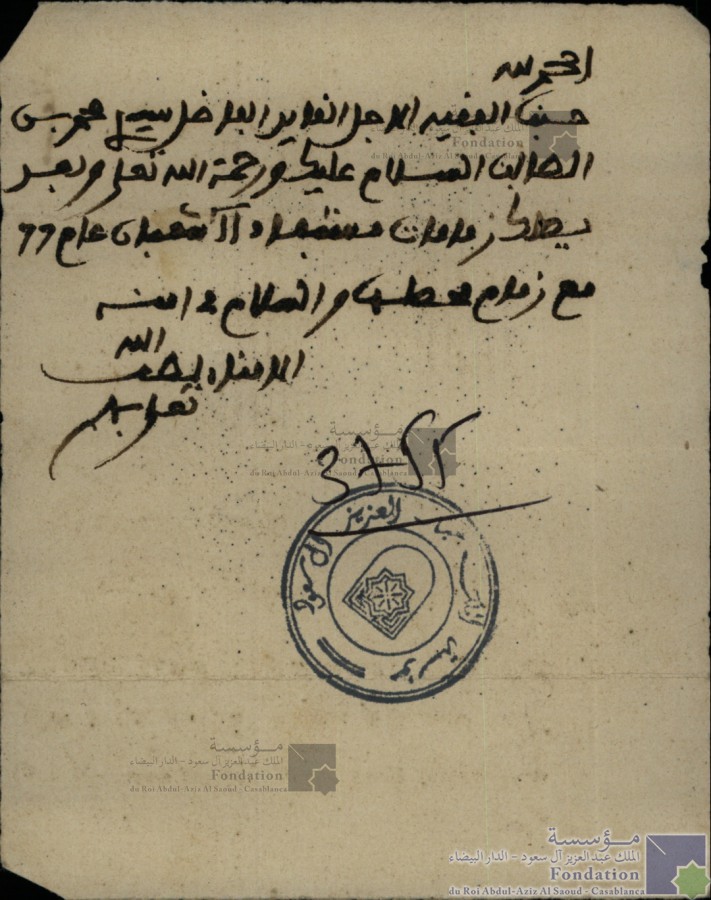 الحمد لله
جناب الفقيه الاجل القايد الفاضل سيدي محمد بن
الطالب السلام عليك ورحمة الله تعلى وبعد
يصلك زمامات مستفاد شعبان عام 77
مع زمام والسلام في منه
الامناء
الله
تعلى
مؤسسة الملك عبد العزيز آل سعود
مؤسسة
الملك عبد العزيز آل سعود - الدار البيضاء
Fondation
du Roi Abdul-Aziz Al Saoud - Casablanca
مؤسسة
الملك عبد العزيز آل سعود - الدار البيضاء
Fondation
du Roi Abdul-Aziz Al Saoud - Casablanca
مؤسسة
الملك عبد العزيز آل سعود - الدار البيضاء
Fondation
du Roi Abdul-Aziz Al Saoud - Casablanca